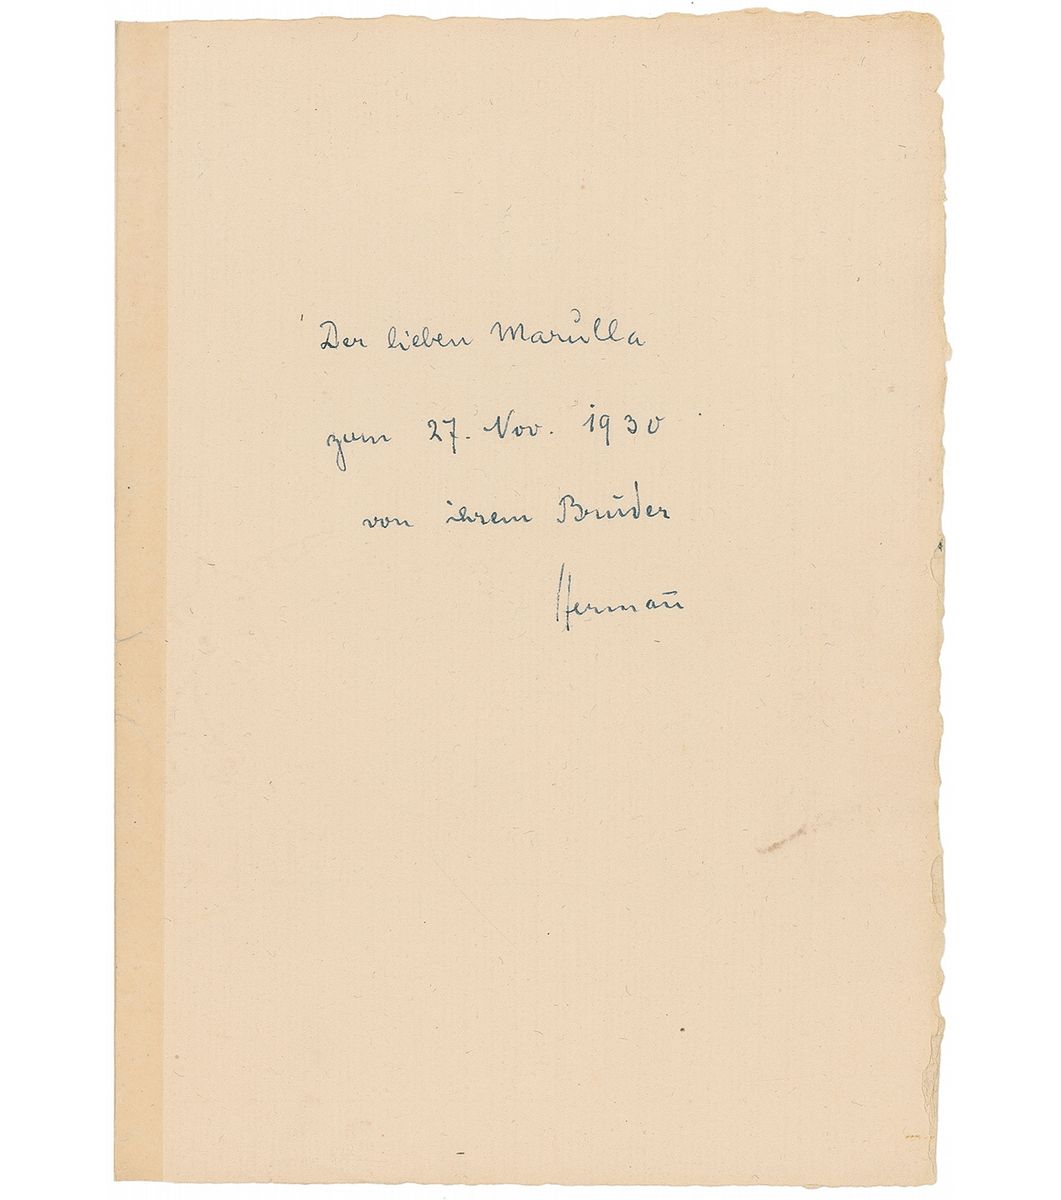 Der lieben Marulla
zum 27. Nov. 1930
von ihrem Bruder
Herman̄